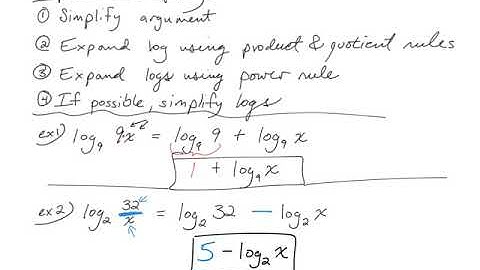 ① Simplify argument
② Expand log using product & quotient rules
③ Expand logs using power rule
④ If possible, simplify logs
ex1) log₉ 9·x = log₉ 9 + log₉ x
1 + log₉ x
ex2) log₂ 32/x = log₂ 32 − log₂ x
5 − log₂ x